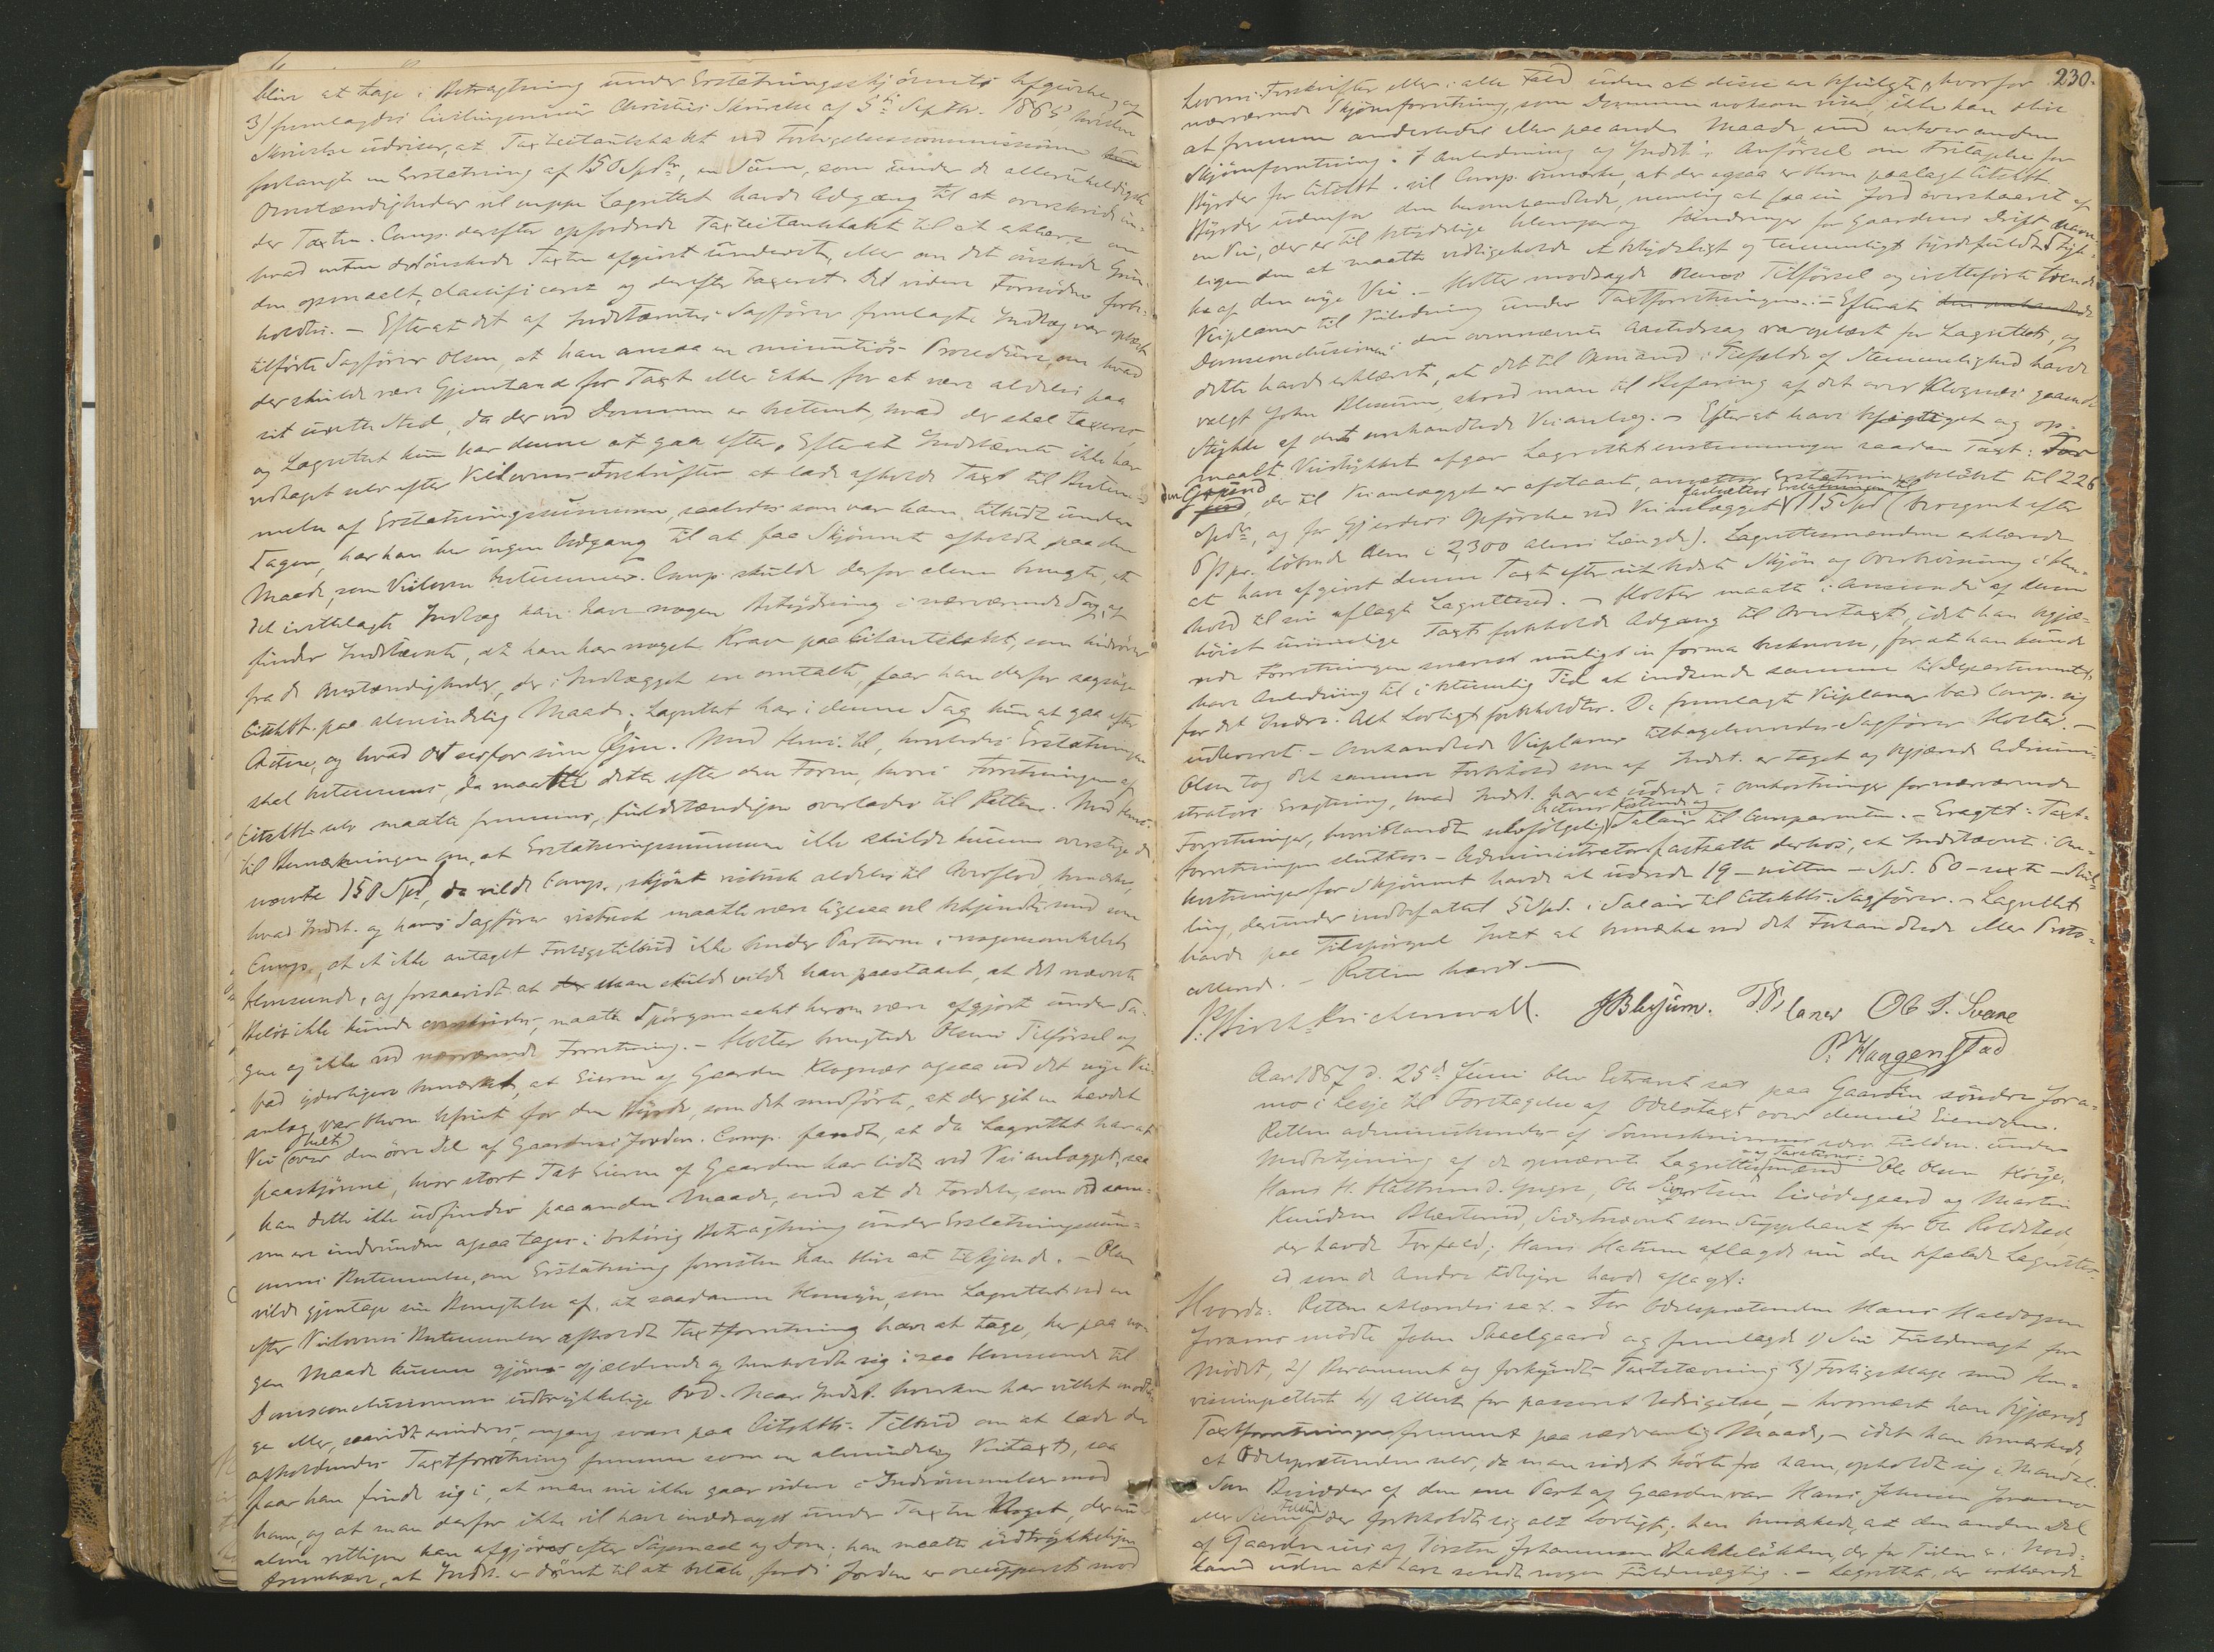 blive at tage i Betragtning under Erstatningsskjönnets Afgivelse, og
3) fremlagdes Civilingenieur Christies Skrivelse af 5te Septbr. 1865, hvilken
Skrivelse udviser, at Taxtcitantskabet ved Forligelsescommissionen
forlangte en Erstatning af 150 Spd, en Sum, som under de alleruheldigste
Omstændigheder vel neppe Lagrettet havde Adgang til at overskride un-
der Taxten. Comp. derefter opfordrede Taxtcitantskabet til at erklære om
hvad enten det önskede Taxten afgivet underet, eller om det önskede Grun-
den opmaalt, classificeret og derefter taxeret. Det videre Fornödne forbe-
holdtes. – Efterat det af Indstævntes Sagförer fremlagte Indlæg var oplæst
tilförte Sagförer Olsen, at han ansaa en minutiös Procedure, om hvad
der skulde være Gjenstand for Taxt eller ikke for at være aldeles paa
sit urette Sted, da der ved Dommen er bestemt, hvad der skal taxeres,
og Lagrettet kun har denne at gaa efter. Efterat Indstævnte ikke har
vedtaget selv efter Veilovens Forskrifter at lade afholde Taxt til Bestem-
melse af Erstatningssummen, saaledes som var ham tilbudt under
Sagen, har han her ingen Adgang til at faa Skjönnet afholdt paa den
Maade, som Veiloven bestemmer. Comp. skulde derfor alene benegte, at
det irettelagte Indlæg kan have nogen Betydning i nærværende Sag, og
finder Indstævnte, at han har noget Krav paa Citantskabet, som hidrörer
fra de Omstændigheder, der i Indlægget ere omtalte, faar han derfor sagsöge
Citsk. paa almindelig Maade. Lagrettet har i denne Sag kun at gaa efter
Acten, og hvad det seer for sine Öjne. Med Hensyn til, hvorledes Erstatningen
skal bestemmes, da maatte dette efter den Form, hvori Forretningen af
Citskbt. selv maatte fremmes, fuldstændigen overlades til Retten. Med Hensyn
til Bemærkningen om, at Erstatningssummen ikke skulde kunne overstige de
nævnte 150 Spd, da vilde Comp., skjönt vistnok aldeles til Overflod, bemærke,
hvad Indst. og hans Sagförer vistnok maatte være ligesaa vel bekjendt med som
Comp., at et ikke antaget Forligstilbud ikke binder Parterne i nogensomhelst
Henseende, og forsaavidt at man skulde ville have paastaaet, at det nævnte
Belöb ikke kunde overskrides, maatte Spörgsmaalet herom være afgjort under Sa-
gen og ikke ved nærværende Forretning. – Holter benegtede Olsens Tilförsel og
bad yderligere bemærket, at Eieren af Gaarden Klognæs ogsaa ved det nye Vei-
anlæg var bleven befriet for den Byrde, som det medförte, at der gik en hævdet
Vei over den övre Del af Gaardens Jorder. Comp. fandt, at da Lagrettet har at
paaskjönne, hvor stort Tab Eieren af Gaarden har lidt ved Veianlægget, saa
kan dette ikke udfindes paa anden Maade, end at de Fordele, som ved sam-
me ere indvundne ogsaa tages i behörig Betragtning under Erstatningssum-
mens Bestemmelse, om Erstatning forresten kan blive at tilkjende. – Olsen
vilde gjentage sin Benegtelse af, at saadanne Hensyn, som Lagrettet ved en
efter Veilovens Bestemmelser afholdt Taxtforretning har at tage, her paa no-
gen Maade kunne gjöres gjældende og henholdt sig i saa Henseende til
Domsconclusionens udtrykkelige Ord. Naar Indst. hverken har villet modta-
ge eller, saavidt erindres, engang svare paa Citskbts. Tilbud om at lade den
afholdendes Taxtforretning fremme som en almindelig Veitaxt, saa
faar han finde sig i, at man nu ikke gaar videre i Indrömmelser mod
ham, og at man derfor ikke vil have inddraget under Taxten Noget, der nu
alene rettigen kan afgjöres efter Sögsmaal og Dom; han maatte udtrykkeligen
fremhæve, at Indst. er dömt til at betale, fordi Jorden er occupperet mod
230.
Lovens Forskrifter eller i alle Fald uden at disse er befulgte, hvorfor
nærværende Skjönsforretning, som Dommen noksom viser, ikke kan blive
at fremme anderledes eller paa anden Maade end enhver anden
Skjönsforretning. I Anledning af Indst.s Anförsel om Fritagelse for
Byrder for Citskbt. vil Comp. bemærke, at der ogsaa er ham paalagt Citskbt.
Byrder udenfor den heromhandlede, nemlig at faa sin Jord overskaaret af
en Vei, der er til betydelige Ulemper og Hindringer for Gaardens Drift navn-
ligen den at maatte vedligeholde et betydeligt og temmeligt byrdefuldt Styk-
ke af den nye Vei. – Holter modsagde denne Tilförsel og irettelförte tvende
Veiplaner til Veiledning under Taxtforretningen. – Efterat
Domsconclusionen i den ovennævnte Aastedssag var oplæst for Lagrettet, og
dette havde erklæret, at det til Opmand i Tilfælde af Stemmelighed havde
valgt John Blessum, skred man til Befaring af det over Klognæs gaaende
Stykke af det omhandlede Veianlæg. – Efter at have besigtiget og op-
maalt Veistykket afgav Lagrettet enstemmigen saadan Taxt: For
den Grund, der til Veianlægget er afstaaet, ansættes Erstatningsbelöbet til 226
Spd, og for Gjerders Opförelse ved Veianlægget fastsættes Erstatningen til 115 Spd (beregnet efter
6 ß pr. löbende Alen i 2300 Alens Længde). Lagrettesmændene erklærede
at have afgivet denne Taxt efter sit bedste Skjön og Overbeviisning i Hen-
hold til sin aflagte Lagretteed. – Holter maatte i Anseende af denne
höist urimelige Taxt forbeholde Adgang til Overtaxt, idet han begjæ-
rede Forretningen snarest muligt in forma beskreven, for at han kunde
have Anledning til i betimelig Tid at indsende samme til Departementet
for det Indre. Alt Lovligt forbeholdtes. De fremlagte Veiplaner bad Comp. sig
udleveret. – Omhandlede Veiplaner tilbageleveredes Sagförer Holter. –
Olsen tog det samme Forbehold som af Indst. er taget og begjærede Admini-
strators Eragtning, hvad Indst. har at udrede i Omkostninger for nærværende
Forretninger, hvoriblandt selvfölgelig Actens Kostende og Salair til Comparenten. – Eragtet: Taxt-
forretningen sluttes. – Administrator fastsatte derhos, at Indstævnte i Om-
kostninger for Skjönnet havde at udrede 19 – nitten – Spd. 60 – sexti – Skil-
ling, derunder indbefattet 5 Spd. i Salair til Citskbts. Sagförer. – Lagrettet
havde paa Tilspörgsel Intet at bemærke ved det Forhandlede eller Proto-
collerede. – Retten hævet –
P. Birch-Reichenwald. JBlessum. Ole T. Svare
P. Haagenstad
Aar 1867 d. 25de Juni blev Extraret sat paa Gaarden söndre Jora-
mo i Lesje til Foretagelse af Odelstaxt over denne Eiendom.
Retten administreredes af Sorenskriveren under
Medbetjening af de opnævnte Lagrettesmænd og Taxtmænd: Ole Olsen
Hans H. Hattrem d. yngre, Ole Lisödegaard og Martin
Knudsen Sidstnævnte som Suppleant for Ole
der havde Forfald; Hans Hattrem aflagde nu den befalede Lagrettes-
ed som de Andre tidligere havde aflagt:
Hvorda: Retten erklæredes sat. – For Odelsprætendenten Hans
Joramo mödte John Skaelgaard og fremlagde 1) Sin Fuldmagt for
Mödet, 2) Berammet og forkyndt Taxtstævning 3) Forligsklage med Hen-
visningsattest 4) Attest for passeret Udsigelse, – hvornæst han begjærede
Taxtforretningen fremmet paa sædvanlig Maade, – idet han bemærkede,
at Odelsprætendenten selv, da man sidst hörte fra ham, opholdt sig i Mandal.
Som Besidder af den ene Part af Gaarden var Hans Johnsen Joramo
tilstede, der forbeholdt sig alt Lovligt; han bemærkede, at den anden Del
af Gaarden eies af Torsten Johannessen Bakkelökken, der for Tiden er i Nord-
land uden at have sendt nogen Fuldmægtig. – Lagrettet, der erklærede